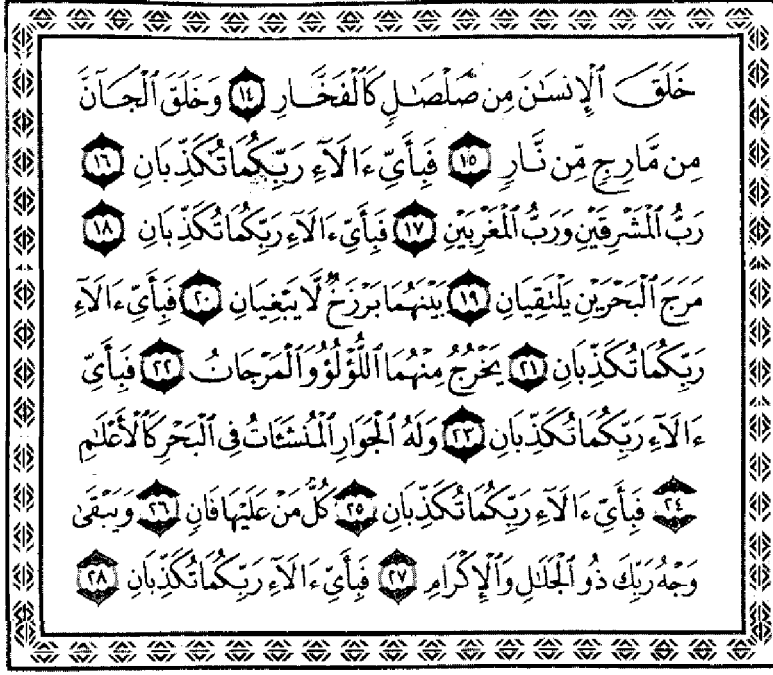 خَلَقَ ٱلْإِنسَٰنَ مِن صَلْصَٰلٍ كَٱلْفَخَّارِ ١٤ وَخَلَقَ ٱلْجَآنَّ
مِن مَّارِجٍ مِّن نَّارٍ ١٥ فَبِأَىِّ ءَالَآءِ رَبِّكُمَا تُكَذِّبَانِ ١٦
رَبُّ ٱلْمَشْرِقَيْنِ وَرَبُّ ٱلْمَغْرِبَيْنِ ١٧ فَبِأَىِّ ءَالَآءِ رَبِّكُمَا تُكَذِّبَانِ ١٨
مَرَجَ ٱلْبَحْرَيْنِ يَلْتَقِيَانِ ١٩ بَيْنَهُمَا بَرْزَخٌ لَّا يَبْغِيَانِ ٢٠ فَبِأَىِّ ءَالَآءِ
رَبِّكُمَا تُكَذِّبَانِ ٢١ يَخْرُجُ مِنْهُمَا ٱللُّؤْلُؤُ وَٱلْمَرْجَانُ ٢٢ فَبِأَىِّ
ءَالَآءِ رَبِّكُمَا تُكَذِّبَانِ ٢٣ وَلَهُ ٱلْجَوَارِ ٱلْمُنشَـَٔاتُ فِى ٱلْبَحْرِ كَٱلْأَعْلَٰمِ
٢٤ فَبِأَىِّ ءَالَآءِ رَبِّكُمَا تُكَذِّبَانِ ٢٥ كُلُّ مَنْ عَلَيْهَا فَانٍ ٢٦ وَيَبْقَىٰ
وَجْهُ رَبِّكَ ذُو ٱلْجَلَٰلِ وَٱلْإِكْرَامِ ٢٧ فَبِأَىِّ ءَالَآءِ رَبِّكُمَا تُكَذِّبَانِ ٢٨